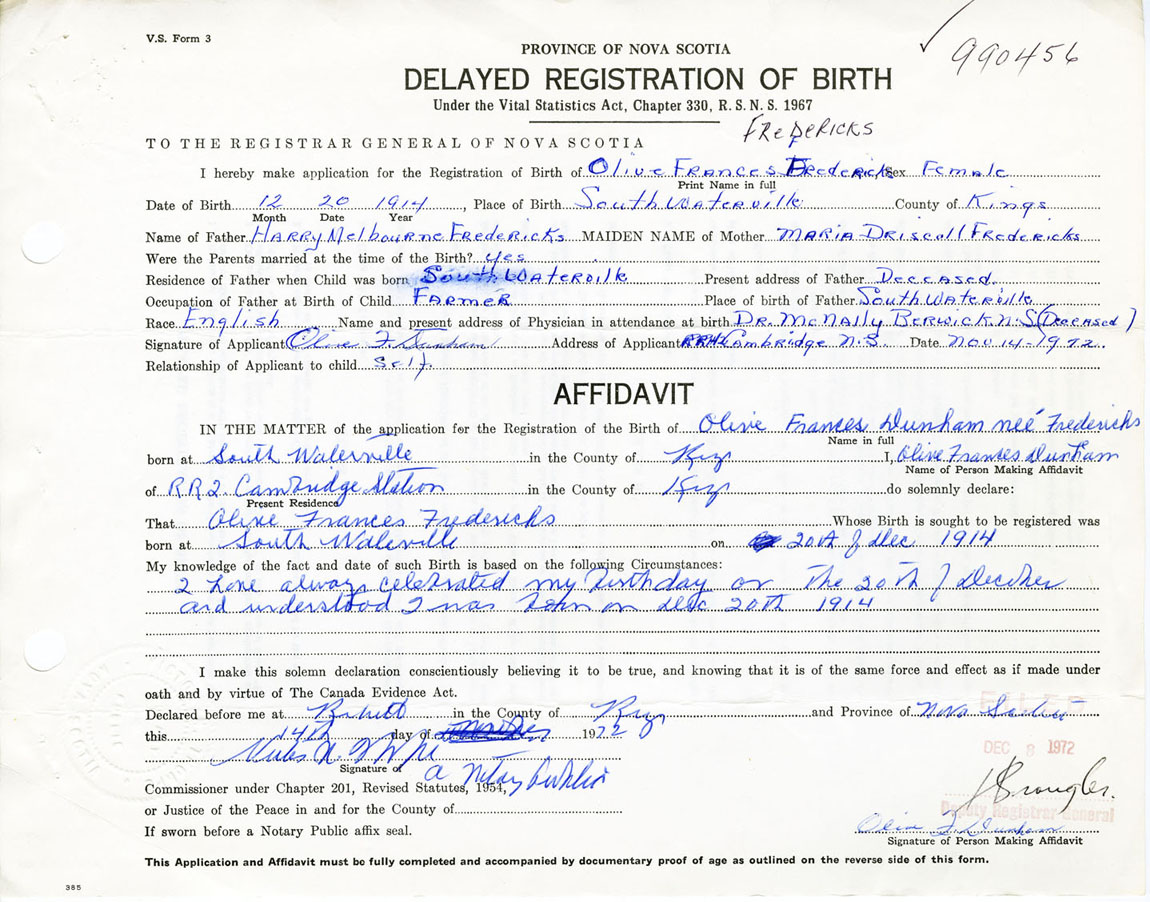 V.S. Form 3
PROVINCE OF NOVA SCOTIA
990456
DELAYED REGISTRATION OF BIRTH
Under the Vital Statistics Act, Chapter 330, R.S.N.S. 1967
FREDERICKS
TO THE REGISTRAR GENERAL OF NOVA SCOTIA
I hereby make application for the Registration of Birth of Olive FRANCES Fredericks Sex Female
Print Name in full
Date of Birth 12 20 1914, Place of Birth South Waterville County of Kings
Month Date Year
Name of Father HARRY Melbourne FREDERICKS MAIDEN NAME of Mother MARIA DRISCOLL FREDERICKS
Were the Parents married at the time of the Birth? yes
Residence of Father when Child was born South WATERville Present address of Father DECEASED.
Occupation of Father at Birth of Child FARMER Place of birth of Father South WATERville
Race English Name and present address of Physician in attendance at birth DR. McNAlly BERWICK N.S (Deceased)
Signature of Applicant Olive F. Dunham Address of Applicant Cambridge N.S. Date Nov 14-1972.
Relationship of Applicant to child Self.
AFFIDAVIT
IN THE MATTER of the application for the Registration of the Birth of Olive Frances Dunham neé Fredericks
Name in full
born at South Waterville in the County of Kings I, Olive Frances Dunham
Name of Person Making Affidavit
of RR2 Cambridge Station in the County of Kings do solemnly declare:
Present Residence
That Olive Frances Fredericks Whose Birth is sought to be registered was
born at South Waterville on 20th of Dec 1914
My knowledge of the fact and date of such Birth is based on the following Circumstances:
I have always celebrated my birthday on the 20th of December
and understood I was born on Dec 20th 1914
I make this solemn declaration conscientiously believing it to be true, and knowing that it is of the same force and effect as if made under
oath and by virtue of The Canada Evidence Act.
Declared before me at in the County of Kings and Province of Nova Scotia
this 14th day of 1972
FILED
DEC 8 1972
Signature of a Notary Public
Commissioner under Chapter 201, Revised Statutes, 1954,
or Justice of the Peace in and for the County of
Deputy Registrar General
If sworn before a Notary Public affix seal.
Olive F. Dunham
Signature of Person Making Affidavit
This Application and Affidavit must be fully completed and accompanied by documentary proof of age as outlined on the reverse side of this form.
385